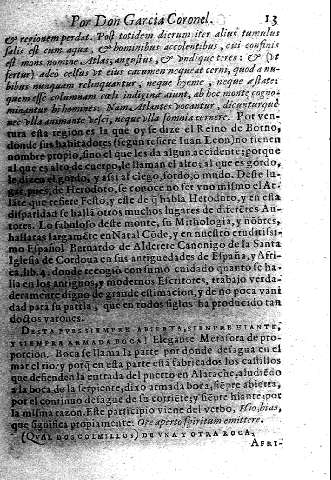 Por Don Garcia Coronel. 13
& regionem perdat. Post totidem dierum iter alius tumulus
salis est cum aqua, & hominibus accolentibus, cui confinis
est mons nomine Atlas, angustus, & vndique teres: & (vt
fertur) adeo celsus vt eius cacumen nequeat cerni, quod a nu-
bibus nunquam relinquatur, neque hyeme, neque æstate:
quem esse columnam cæli indiginæ aiunt, ab hoc monte cogno-
minantur hi homines. Nam Atlantes vocantur, dicunturque
nec vlla animante vesci, neque vlla somnia cernere. Por ven-
tura esta region es la que oy se dize el Reino de Borno,
donde sus habitadores (segun refiere Iuan Leon) no tienen
nombre propio, sino el que les da algun accidente; porque
al que es alto de cuerpo, le llaman el alto; al que es gordo,
le dizen el gordo, y assi al ciego, sordo, o mudo. Deste lu-
gar, pues, de Herodoto, se conoce no ser vno mismo el At-
late que refiere Festo, y el de q̃ habla Herodoto, y en esta
disparidad se hallã otros muchos lugares de diferẽtes Au-
tores. Lo fabuloso deste monte, su Mithologia, y nõbres,
hallaras largamẽte en Natal Comite, y en nuestro eruditissi-
mo Español Bernardo de Alderete Canonigo de la Santa
Iglesia de Cordoua en sus antiguedades de España, y Afri-
ca, lib. 4. donde recogio con sumo cuidado quanto se ha-
lla en los antiguos, y modernos Escritores, trabajo verda-
deramente digno de grande estimacion, y de no poca vani
dad para su patria, que en todos siglos ha producido tan
doctos varones.
DESTA PVES SIEMPRE ABIERTA, SIEMPRE HIANTE,
Y SIEMPRE ARMADA BOCA) Elegante Metafora de pro-
porcion. Boca se llama la parte por donde desagua en el
mar el rio, y porq̃ en esta parte està fabricados los castillos
que defienden la entrada del puerto en Alarache, aludiẽdo
a la boca de la serpiente, dixo armada boca, siẽpre abierta,
por el continuo desague de su corriẽte; y siẽpre hiante, por
la misma razon. Este participio viene del verbo, Hio, hias,
que significa propiamente: Ore aperto spiritum emittere.
(QVAL DOS COLMILLOS) DE VNA Y OTRA ROCA,
AFRI-